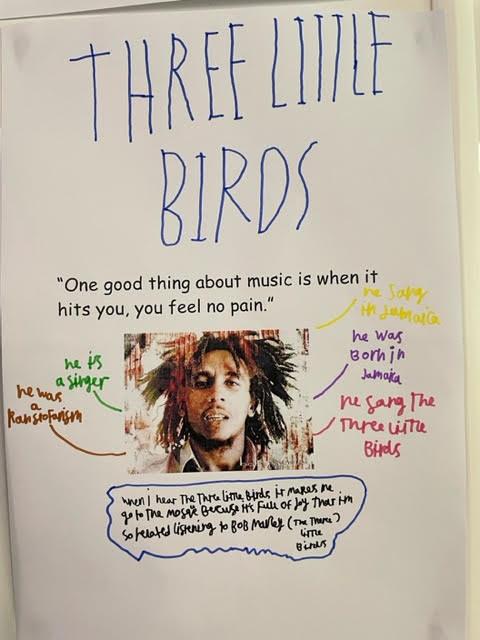 THREE LITTLE
BIRDS
“One good thing about music is when it
hits you, you feel no pain.”
he sang
in Jamaica
he was
Born in
Jamaica
he is
a singer
he was
a
he sang The
Three Little
Birds
when i hear The Three little Birds it makes me
go to The Because it's full of Joy That i'm
so listening to BOB Marley (The Three)
little
Birds